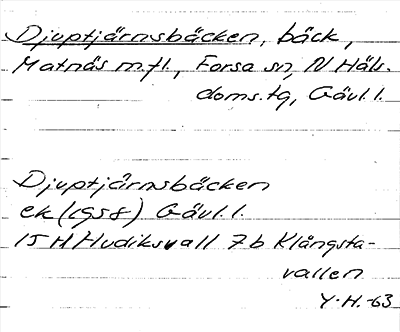 Djuptjärnsbäcken, bäck,
Matnäs m.fl., Forsa sn, N Häls.
doms.tg, Gävl.l.
Djuptjärnsbäcken
ek (1958) Gävl.l.
15 H Hudiksvall 7b Klångsta-
vallen
Y.H.-63